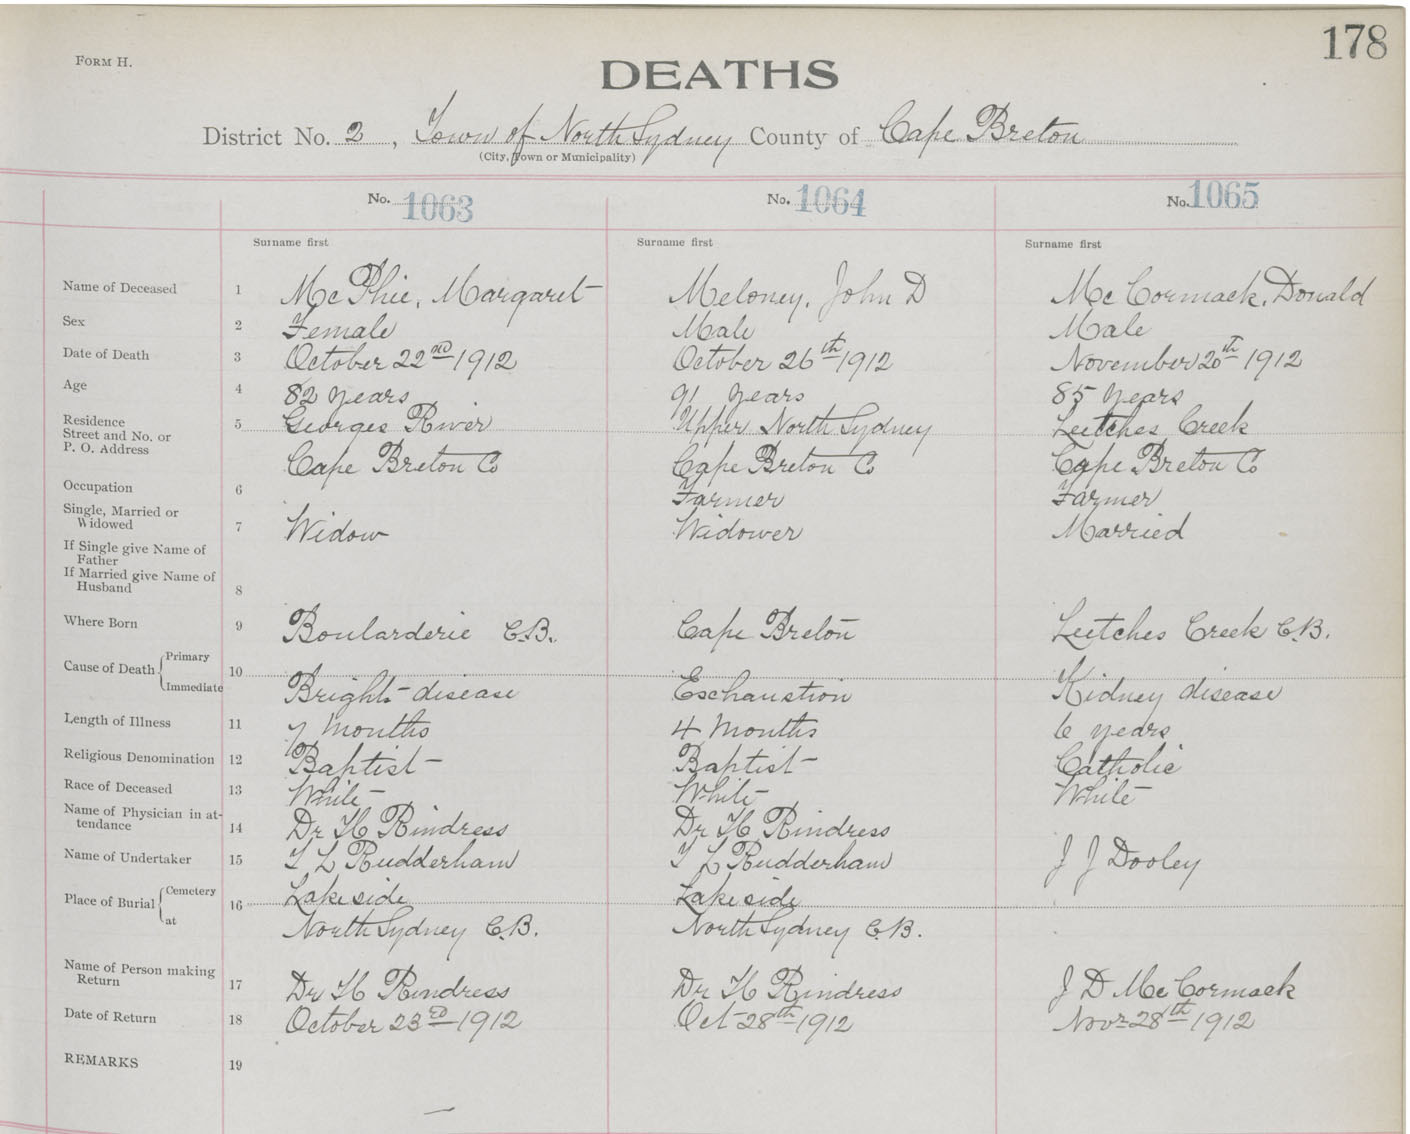 178
FORM H.
DEATHS
District No. 2, Town of North Sydney County of Cape Breton
(City, Town or Municipality)
No. 1063 No. 1064 No. 1065
Surname first Surname first Surname first
Name of Deceased 1 McPhie, Margaret Meloney, John D McCormack, Donald
Sex 2 Female Male Male
Date of Death 3 October 22nd 1912 October 26th 1912 November 20th 1912
Age 4 82 years 91 years 85 years
Residence
Street and No. or 5 Georges River Upper North Sydney Leitches Creek
P. O. Address Cape Breton Co Cape Breton Co Cape Breton Co
Occupation 6 Farmer Farmer
Single, Married or
Widowed 7 Widow Widower Married
If Single give Name of
Father
If Married give Name of
Husband 8
Where Born 9 Boularderie C.B. Cape Breton Leitches Creek C.B.
Cause of Death Primary 10
Immediate Bright disease Eschaustion Kidney disease
Length of Illness 11 7 months 4 months 6 years
Religious Denomination 12 Baptist Baptist Catholic
Race of Deceased 13 White White White
Name of Physician in at-
tendance 14 Dr H Rindress Dr H Rindress
Name of Undertaker 15 T L Rudderham T L Rudderham J J Dooley
Place of Burial Cemetery 16 Lakeside Lakeside
at North Sydney C.B. North Sydney C.B.
Name of Person making
Return 17 Dr H Rindress Dr H Rindress J D McCormack
Date of Return 18 October 23rd 1912 Oct 28th 1912 Novr 28th 1912
REMARKS 19